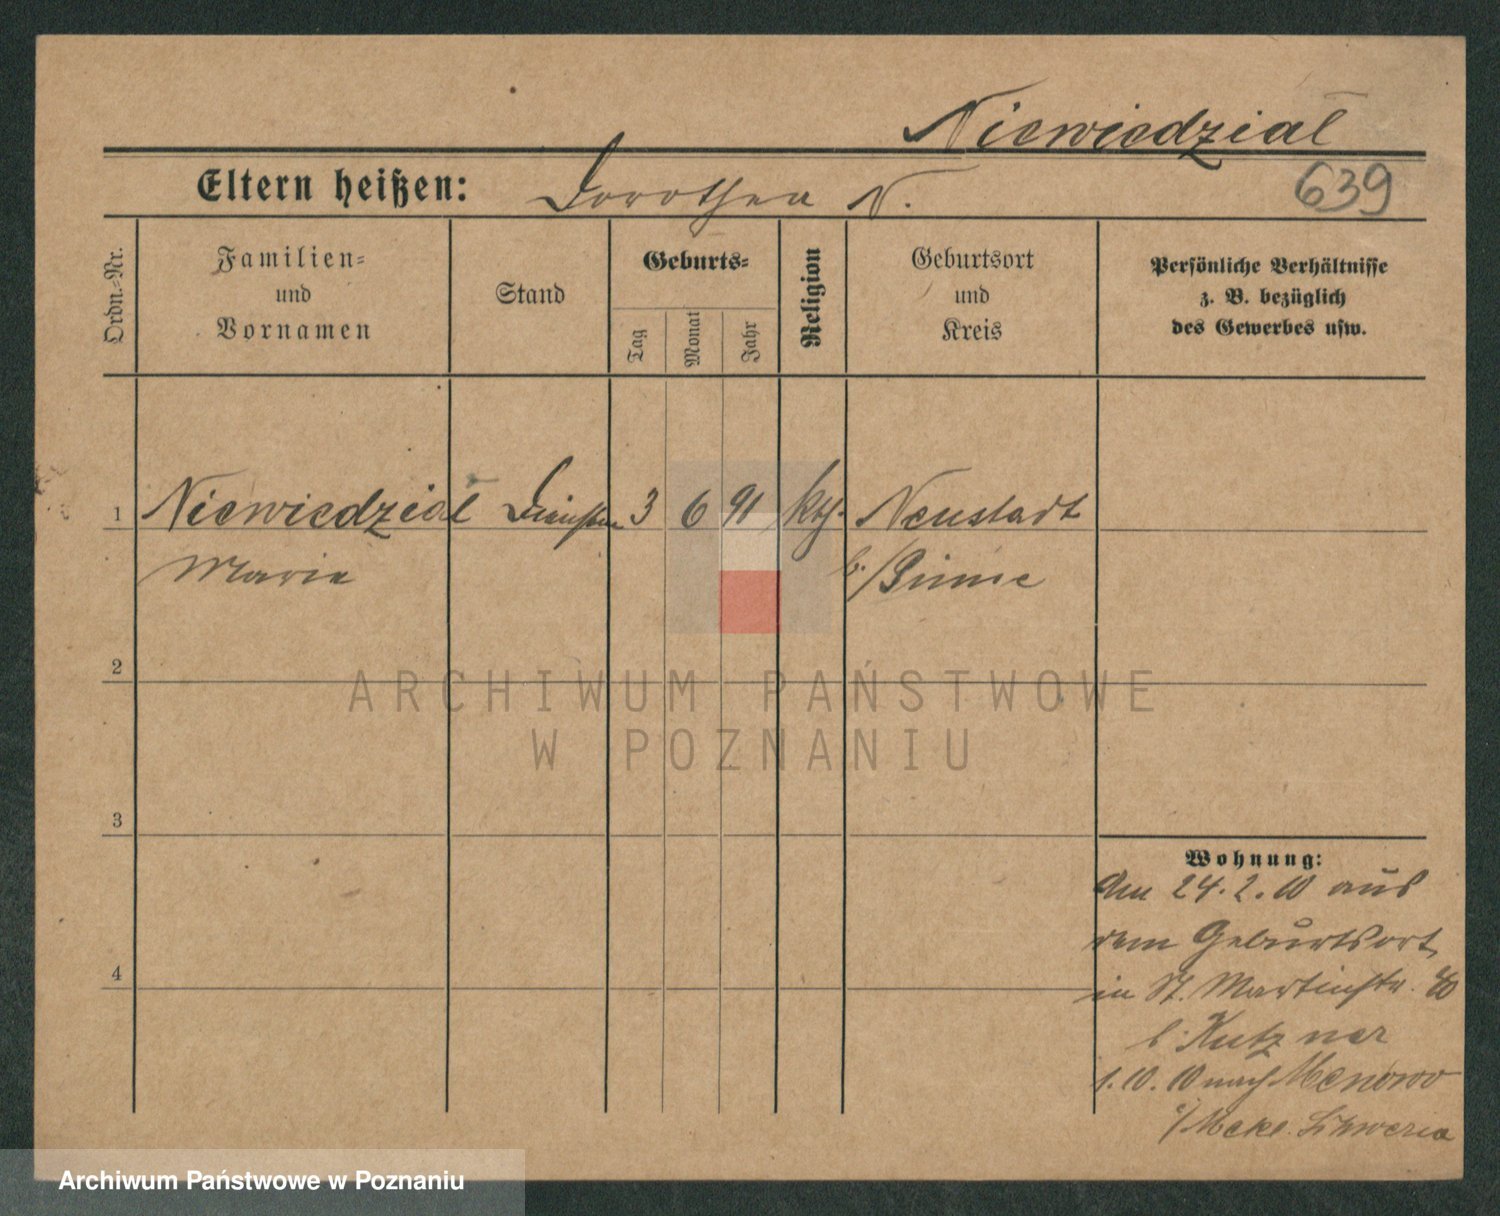 Niewiedzial
Eltern heißen: Dorothea N.
639
Ordn.-Nr.
Familien-
und
Vornamen
Stand
Geburts-
Tag
Monat
Jahr
Religion
Geburtsort
und
Kreis
Persönliche Verhältnisse
z. B. bezüglich
des Gewerbes usw.
1 Niewiedzial 3 6 91 kth. Neustadt
Marie b./Pinne
2
ARCHIWUM PAŃSTWOWE
W POZNANIU
3
Wohnung:
Am 24.2.10 aus
dem Geburtsort
4
in St. Martinstr. 40
b. Kutzner
1.10.10 nach
/Mekl. Schwerin
Archiwum Państwowe w Poznaniu